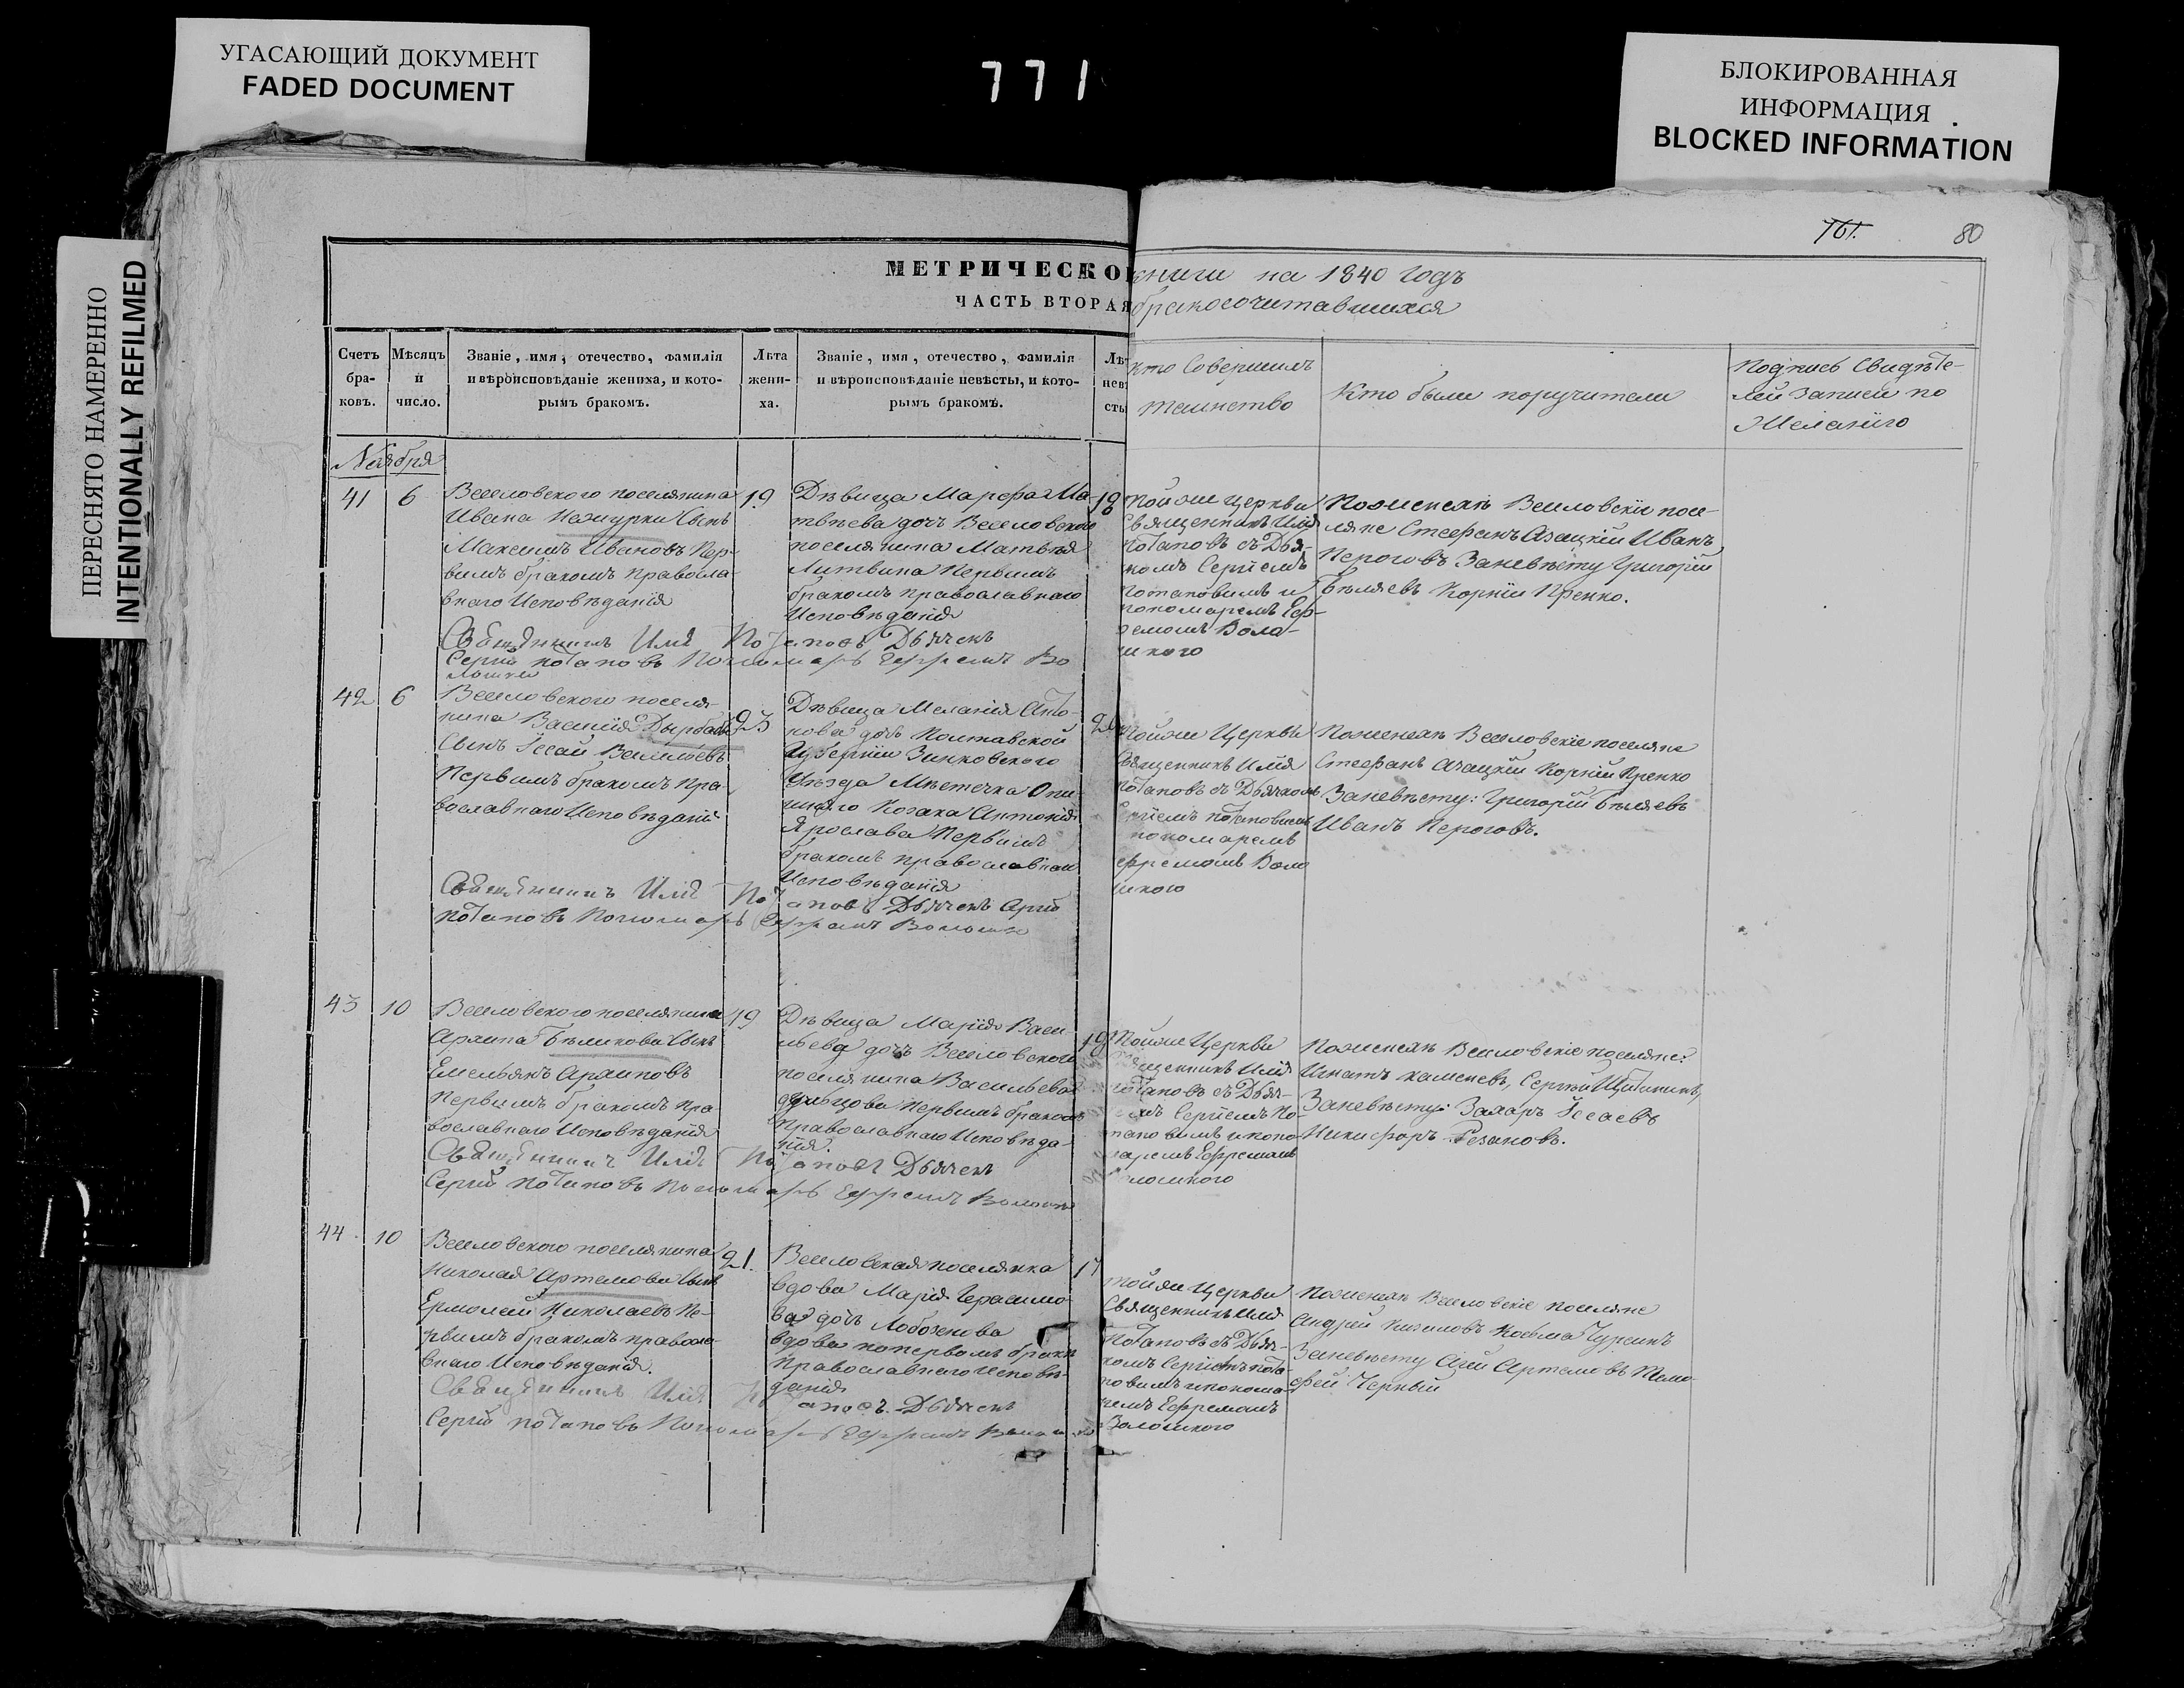 УГАСАЮЩИЙ ДОКУМЕНТ
FADED DOCUMENT
771
БЛОКИРОВАННАЯ
ИНФОРМАЦИЯ
BLOCKED INFORMATION
ПЕРЕСНЯТО НАМЕРЕННО
INTENTIONALLY REFILMED
761.
80
МЕТРИЧЕСКОЙ книги на 1840 годъ
ЧАСТЬ ВТОРАЯ бракосочитавшихся
Счетъ
бра-
ковъ.
Мѣсяцъ
и
число.
Званіе, имя, отечество, фамилія
и вѣроисповѣданіе жениха, и кото-
рымъ бракомъ.
Лѣта
жени-
ха.
Званіе, имя, отечество, фамилія
и вѣроисповѣданіе невѣсты, и кото-
рымъ бракомъ.
Лѣт
невѣ
сты
Кто Совершилъ
таинство
Кто были поручители
Подпись Свидѣте-
лей записи по
Желанію
Ноября
41
6
Веселовскаго поселянина
Ивана Сынъ
Максимъ Ивановъ Пер-
вымъ бракомъ Правосла-
внаго Исповѣданія
19
Дѣвица Марфа Ма-
твѣева дочь Веселовскаго
поселянина Матвѣя
Литвина Первымъ
бракомъ православнаго
Исповѣданія
18
тойже Церкви
Священникъ Илія
Потаповъ съ Дья-
комъ Сергіемъ
Потаповымъ и
пономаремъ Еф-
ремомъ Воло-
шкого
Поженехѣ Веселовскіе посе-
ляне Стефанъ Азацкій Иванъ
Пероговъ Заневѣсту Григорій
Бѣляевъ Корній Пренко.
Священникъ Илія Потаповъ Дьячекъ
Сергій Потаповъ Пономарь Ефремъ Во
лошко
42
6
Веселовскаго поселя-
нина Василія Дырбабы
Сынъ Ісаай Васильевъ
Первымъ бракомъ Пра-
вославнаго Исповѣданія
23
Дѣвица Меланія Анто-
нова дочь Полтавской
Губерніи Зинковскаго
Уѣзда Мѣстечка Опи-
шняго Козака Антонія
Ярослава Первымъ
бракомъ православнаго
Исповѣданія
тойже Церкви
Священникъ Илія
Потаповъ съ Дьячкомъ
Сергіемъ Потаповымъ
пономаремъ
Ефремомъ Воло
шкого
Поженехѣ Веселовскіе поселяне
Стефанъ Азацкій Корній Пренко
Заневѣсту: Григорій Бѣляевъ
Иванъ Пероговъ.
Священникъ Илія Потаповъ Дьячекъ Сергій
Потаповъ Пономарь Ефремъ Волошко
43
10
Веселовскаго поселянина
Архипа Бѣликова Сынъ
Емельянъ Архиповъ
Первымъ бракомъ Пра-
вославнаго Исповѣданія
19
Дѣвица Марія Васи-
льева дочь Веселовскаго
поселянина Васильева
Первымъ бракомъ
Православнаго Исповѣда-
нія.
19
Тойже Церкви
Священникъ Илія
Потаповъ съ Дьяч-
комъ Сергіемъ По-
таповымъ и поно-
маремъ Ефремомъ
Волошкого
Поженехѣ Веселовскіе поселяне:
Игнатъ Каменевъ, Сергѣй Щетининъ,
Заневѣсту: Захаръ Ісаевъ
Никифоръ Резановъ.
Священникъ Илія Потаповъ Дьячекъ
Сергій Потаповъ Пономарь Ефремъ Волошко
44
10
Веселовскаго поселянина
Николая Артемова Сынъ
Ермолай Николаевъ Пе-
рвымъ бракомъ правосла-
внаго Исповѣданія.
21.
Веселовская поселянка
вдова Марія Герасимо-
ва дочь Лобоженова
вдова попервомъ бракѣ
Православнаго Исповѣ-
данія
17
тойже Церкви
Священникъ Илія
Потаповъ съ Дьяч-
комъ Сергіемъ Пота-
повымъ и понома-
ремъ Ефремомъ
Волошкого
Поженехѣ Веселовскіе поселяне
Андрей Кизиловъ Козьма Чурсинъ
Заневѣсту Артемовъ Тимо-
фей Черный
Священникъ Илія Потаповъ Дьячекъ
Сергій Потаповъ Пономарь Ефремъ Волошко